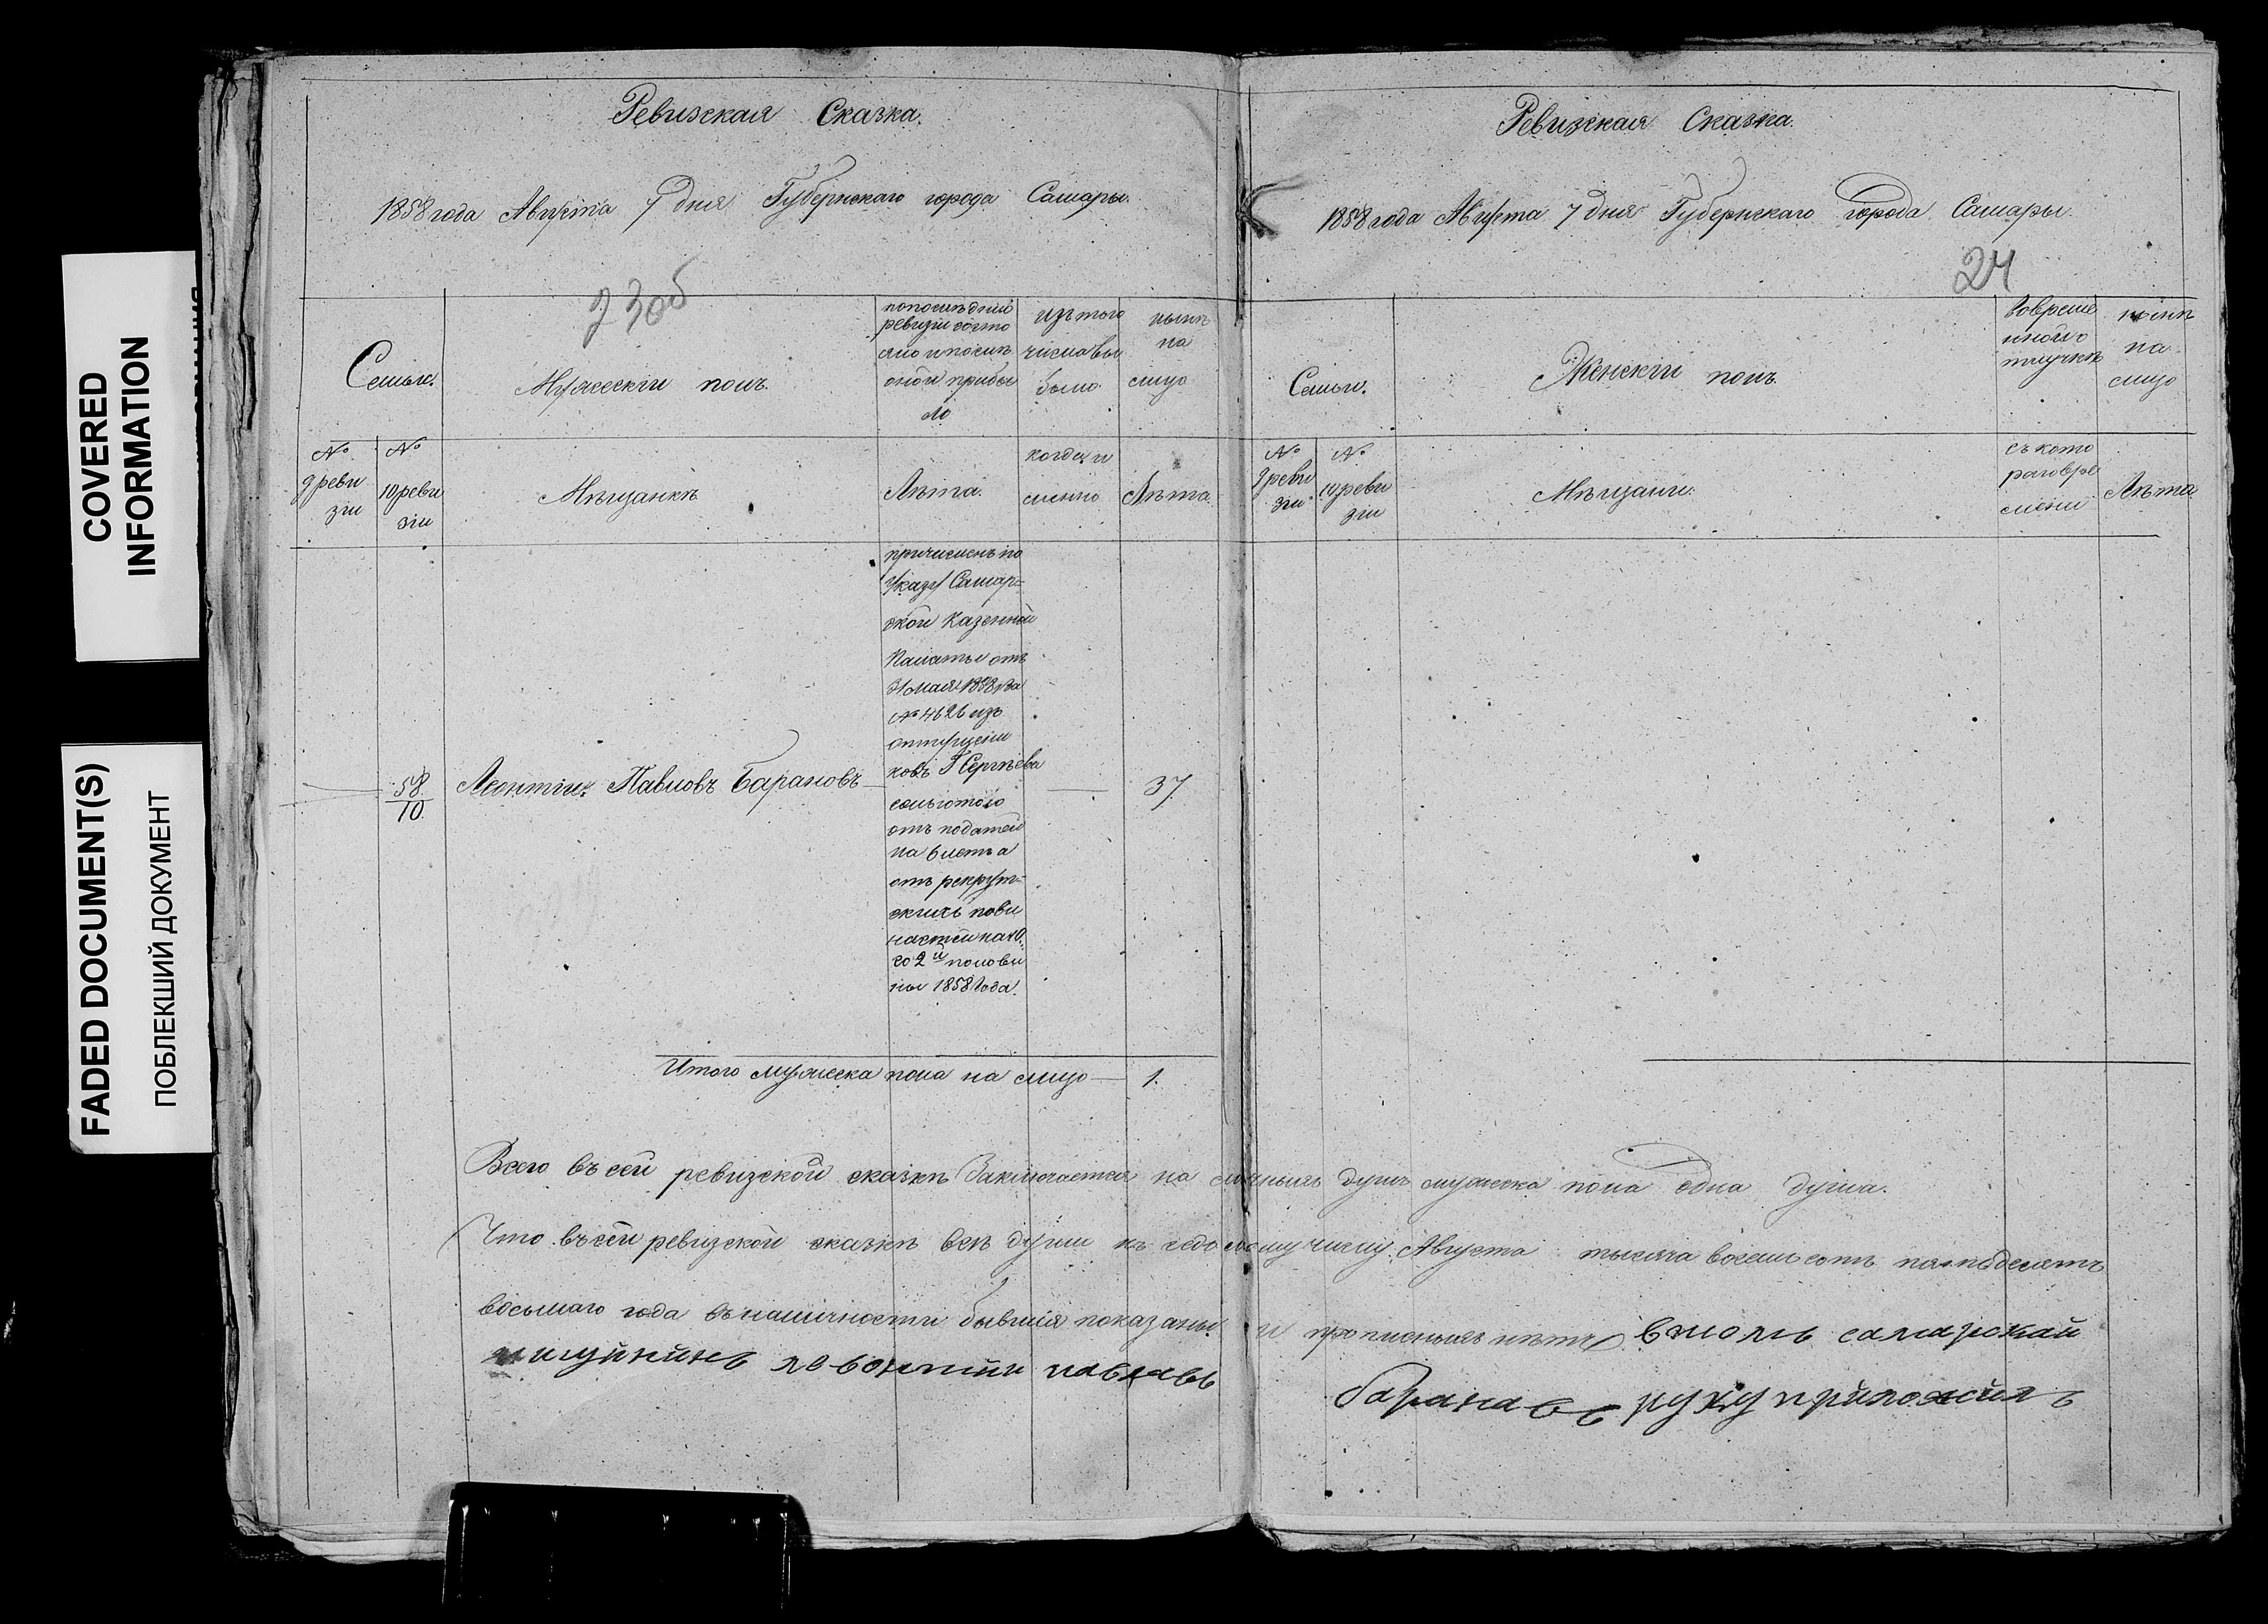 COVERED
INFORMATION
FADED DOCUMENT(S)
ПОБЛЕКШИЙ ДОКУМЕНТ
Ревизская Сказка.
1858 года Августа 7 дня Губернскаго города Самары.
23об
Семьи.
Мужескiй полъ.
по последнiй
ревизiи состо
яло и после
оной прибы
ло
изъ того
числа вы
было
ныне
на
лицо
№
9 реви
зiи
№
10 реви
зiи
Мѣщанинъ
Лѣта.
когда и
менно
Лѣта.
58
10.
Леонтiй Павловъ Барановъ
причисленъ по
Указу Самар=
ской Казенной
Палаты отъ
31 мая 1858 года
№ 4626 изъ
отпущени
ковъ Г Сергѣева
сольготою
отъ податей
на 6 летъ а
отъ рекрут=
скихъ пови
ностей на 10.
со 2й полови
ны 1858 года.
37
Итого мужеска пола на лицо 1.
Ревизская Сказка.
1858 года Августа 7 дня Губернскаго города Самары.
24
Семьи.
Женскiй полъ.
Вовремен
ной о
тлучкѣ
ныне
на
лицо
№
9 реви
зiи
№
10 реви
зiи
Мѣщане.
съ кото
раго вре
мени
Лѣта
Всего въ сей ревизской сказкѣ Заключается на личныхъ душъ мужеска пола одна душа.
Что въ сей ревизской сказкѣ все души къ седьмому числу Августа тысяча восемьсотъ пятьдесятъ
восьмаго года въ наличности бывшiя показаны и прописныхъ нѣтъ вътомъ самарскай
левонтий павлавъ
баранавъ руку приложилъ